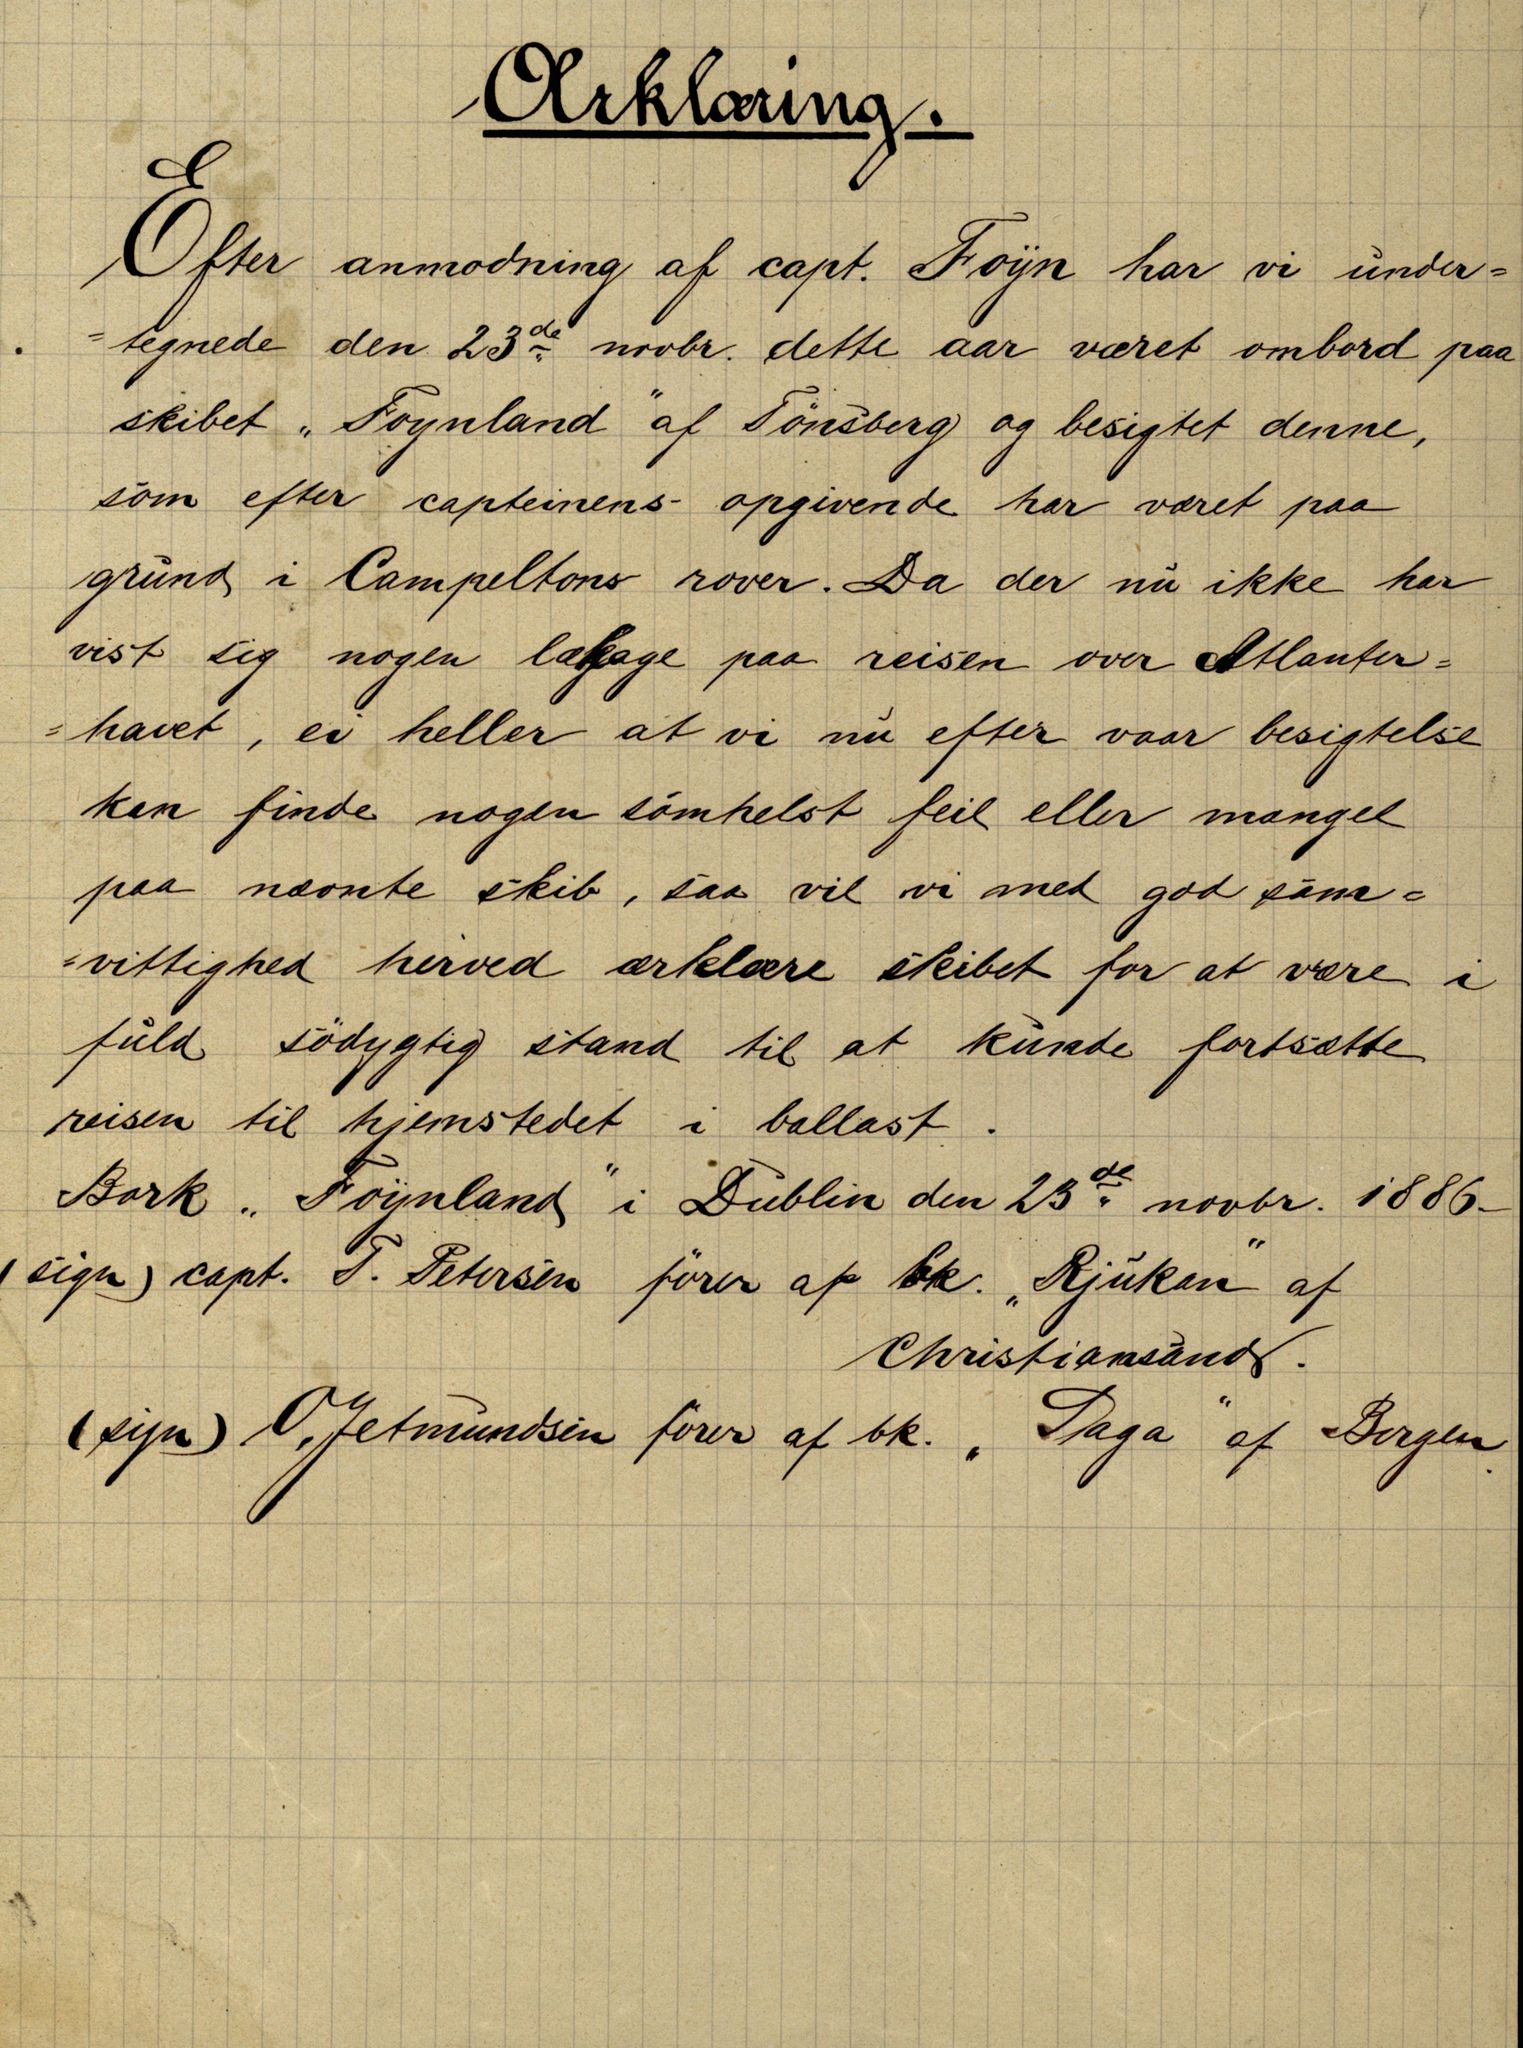 Ærklæring.
Efter anmodning af capt. Føÿn har vi under=
=tegnede den 23de novbr. dette aar været ombord paa
skibet „Foynland" af Tönsberg og besigtet denne,
som efter capteinens opgivende har været paa
grund i Campeltons rover. Da der nu ikke har
vist sig nogen lækage paa reisen over Atlanter=
=havet, ei heller at vi nu efter vaar besigtelse
kan finde nogen somhelst feil eller mangel
paa nævnte skib, saa vil vi med god sam=
=vittighed herved ærklære skibet for at være i
fuld södygtig stand til at kunde fortsætte
reisen til hjemstedet i ballast.
Bark „Foÿnland" i Dublin den 23de novbr. 1886-
(sign) capt. T. Petersen förer af bk. „Rjukan" af
Christiansand.
(sign) O. Jetmundsen förer af bk. „Daga" af Bergen.